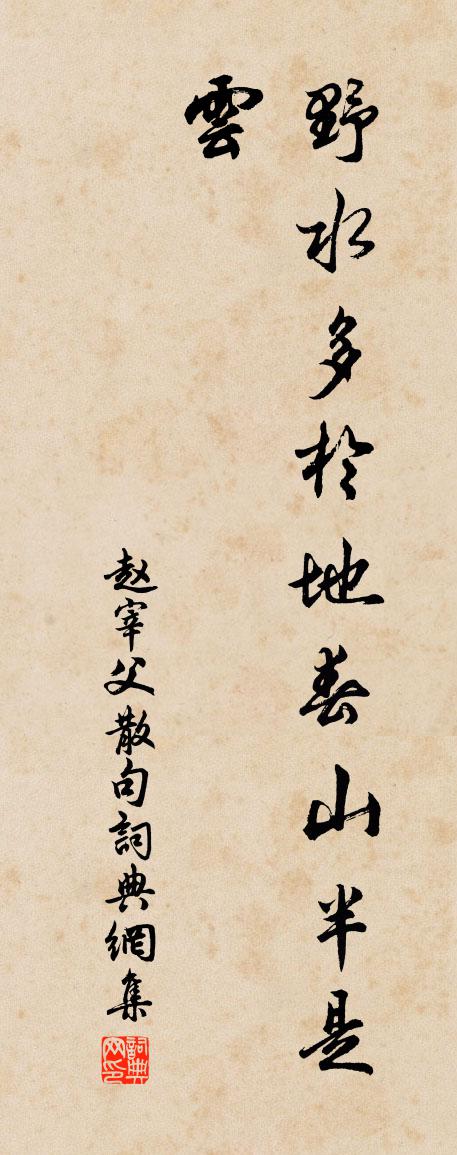 野水多於地春山半是
雲
赵宰父散句詞典網集
詞典网印